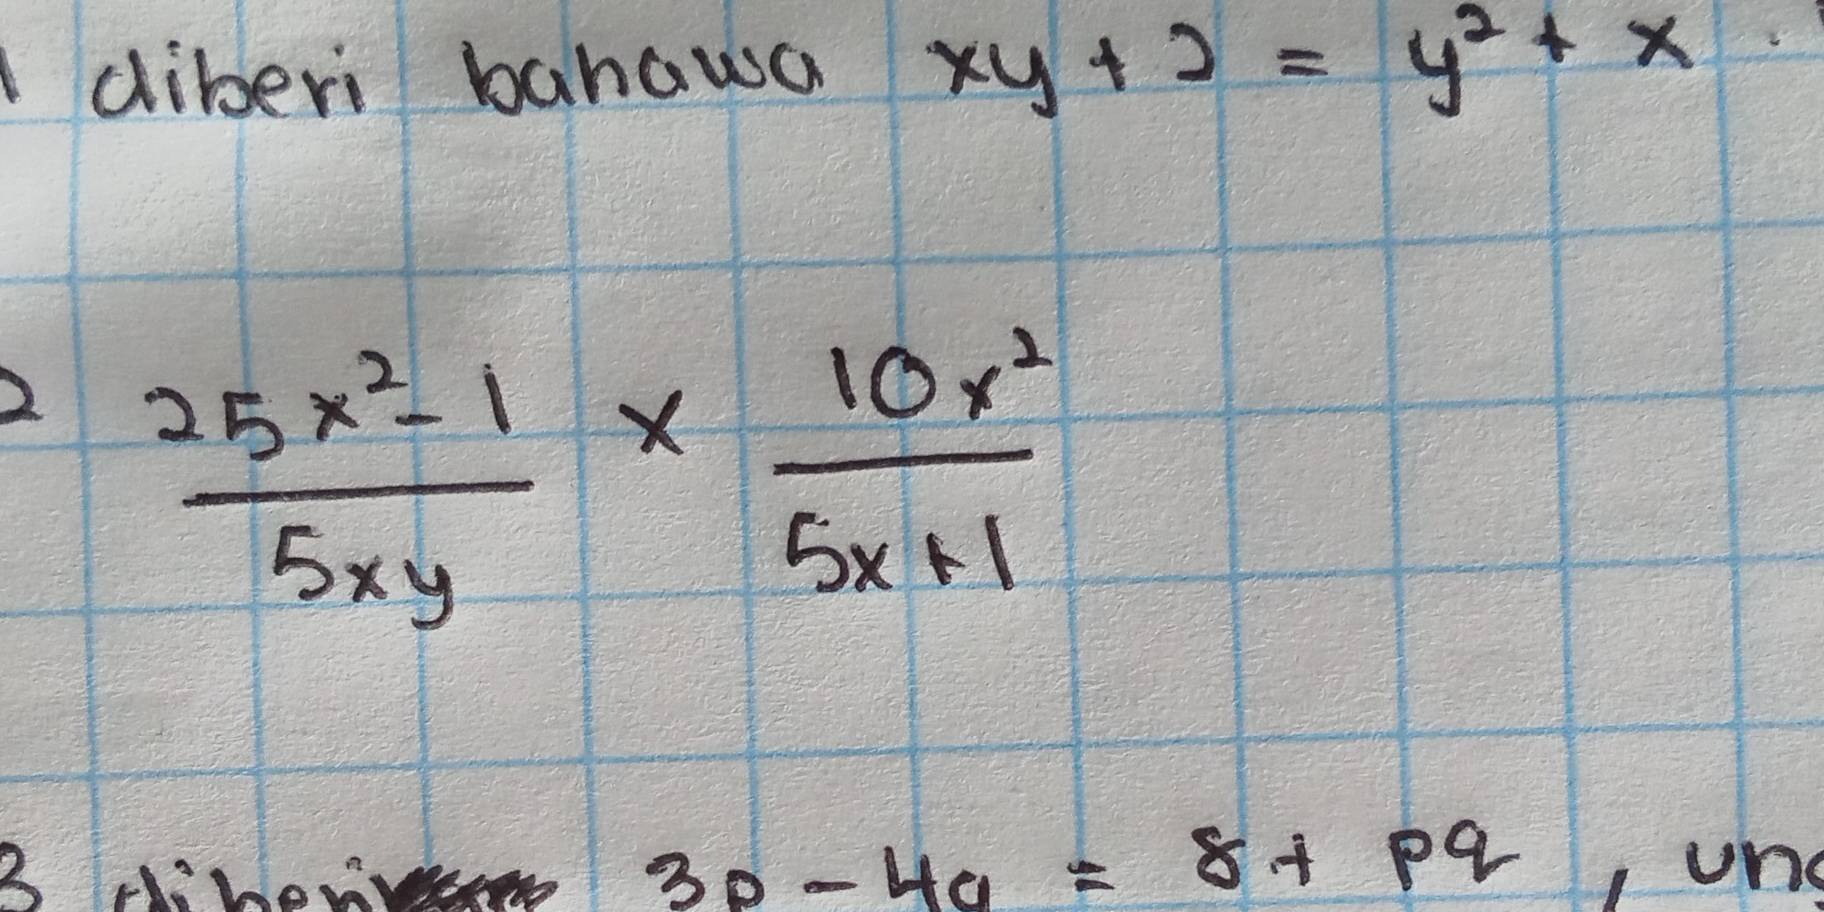 1 diberi bahawa xy + 2 = y² + x.
2 25x² - 1 / 5xy × 10x² / 5x + 1
3 diberi 3p - 4q = 8 + pq,